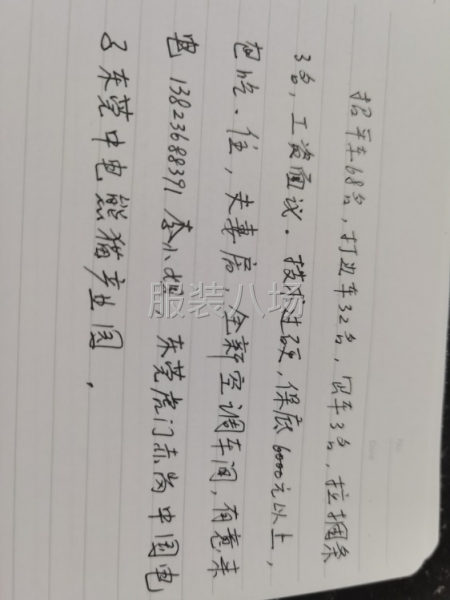 招平车68台,打边车32台,冚车3台,拉捆条
3台,工资面议.技术过硬,保底6000元以上,
包吃.住,夫妻房,全新空调车间,有意来
电 13823688391 李小姐 东莞虎门赤岗中国电
子东莞中电熊猫产业园,
服装八场